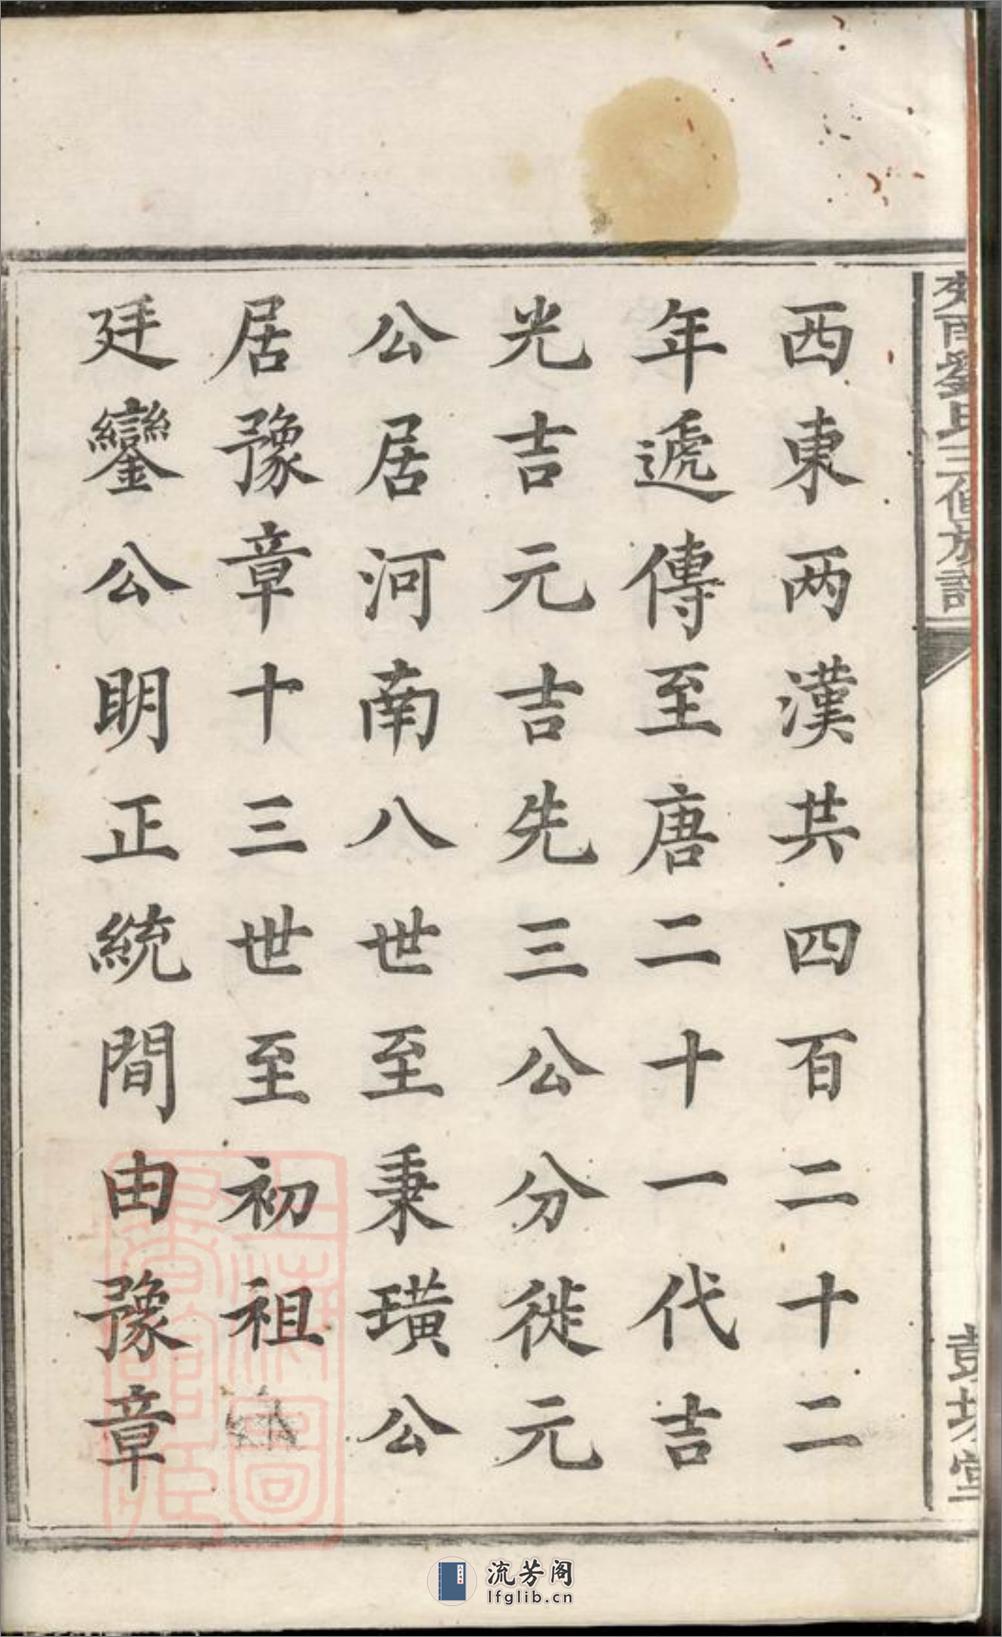 西東两漢共四百二十二
年遞傳至唐二十一代吉
光吉元吉先三公分徙元
公居河南八世至秉璜公
居豫章十三世至初祖
廷鑾公明正統間由豫章
流芳阁
lfglib.cn